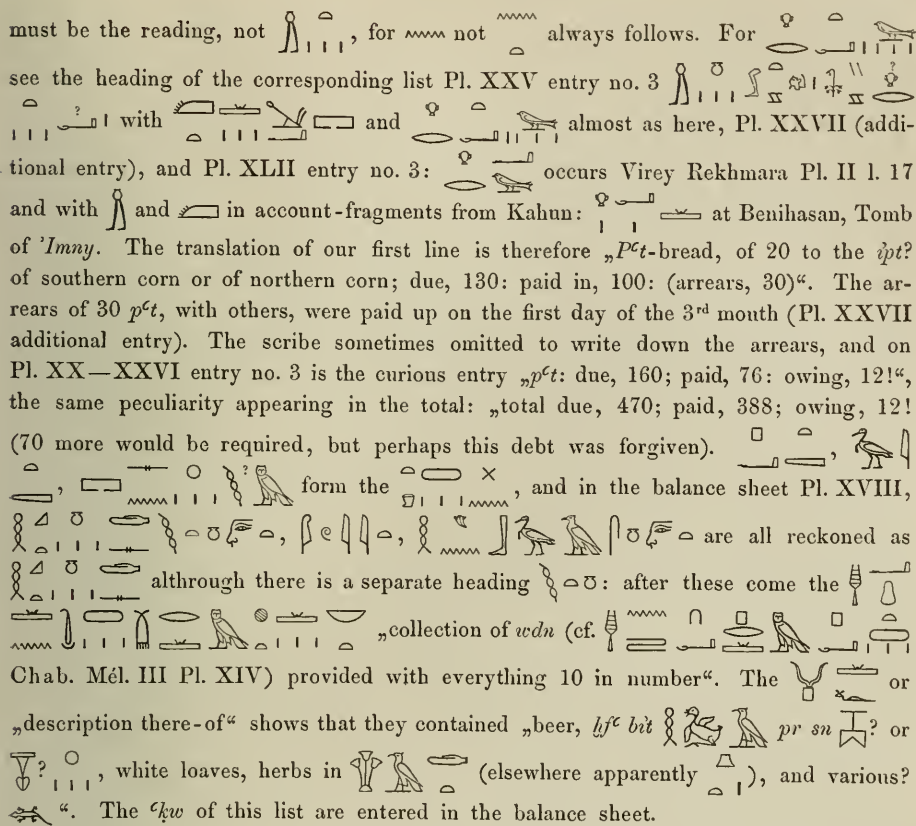 must be the reading, not , for not always follows. For
see the heading of the corresponding list Pl. XXV entry no. 3
with and almost as here, Pl. XXVII (addi-
tional entry), and Pl. XLII entry no. 3: occurs Virey Rekhmara Pl. II l. 17
and with and in account-fragments from Kahun: at Benihasan, Tomb
of ’Imny. The translation of our first line is therefore „Pꜥt-bread, of 20 to the ipt?
of southern corn or of northern corn; due, 130: paid in, 100: (arrears, 30)“. The ar-
rears of 30 pꜥt, with others, were paid up on the first day of the 3rd month (Pl. XXVII
additional entry). The scribe sometimes omitted to write down the arrears, and on
Pl. XX—XXVI entry no. 3 is the curious entry „pꜥt: due, 160; paid, 76: owing, 12!“,
the same peculiarity appearing in the total: „total due, 470; paid, 388; owing, 12!
(70 more would be required, but perhaps this debt was forgiven). ,
, form the , and in the balance sheet Pl. XVIII,
, , are all reckoned as
although there is a separate heading : after these come the
„collection of wdn (cf.
Chab. Mél. III Pl. XIV) provided with everything 10 in number“. The or
„description there-of“ shows that they contained „beer, ḫfꜥ bit pr sn ? or
? , white loaves, herbs in (elsewhere apparently ), and various?
“. The ꜥḳw of this list are entered in the balance sheet.